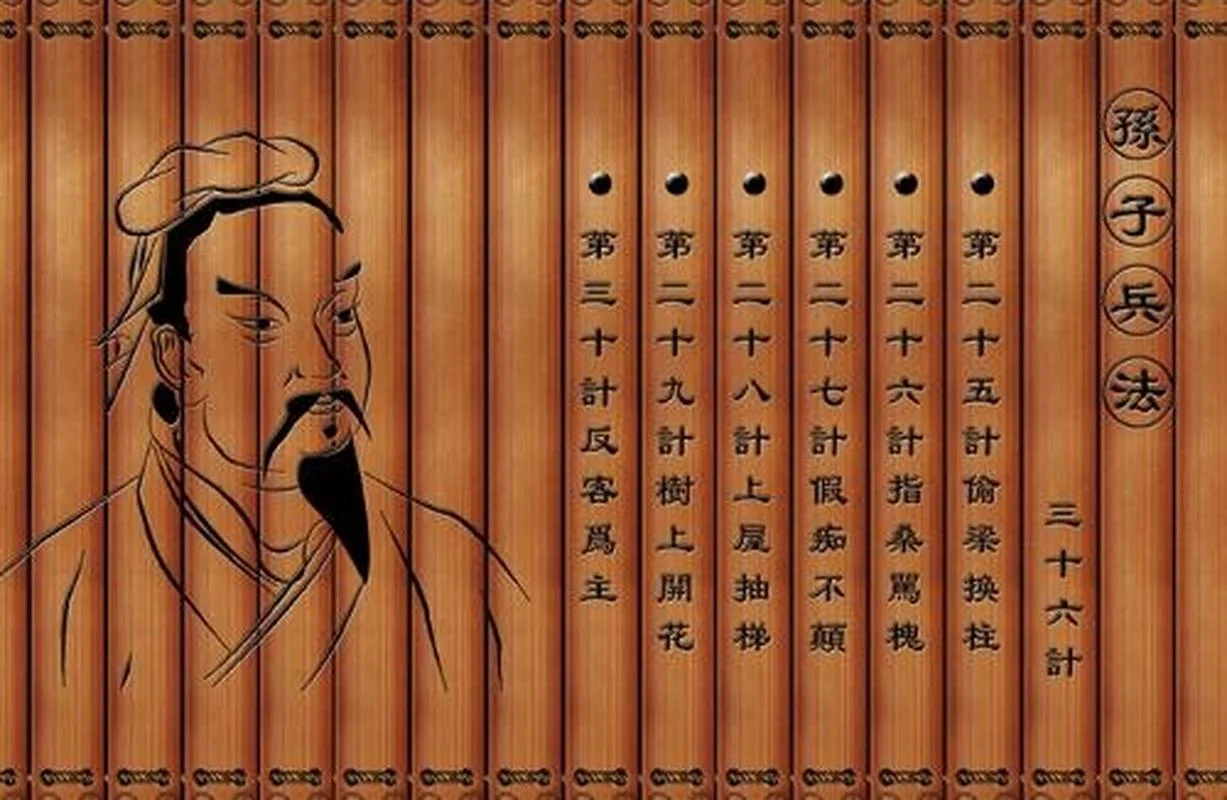 孫子兵法
三十六計
第二十五計偷梁換柱
第二十六計指桑罵槐
第二十七計假痴不顛
第二十八計上屋抽梯
第二十九計樹上開花
第三十計反客爲主